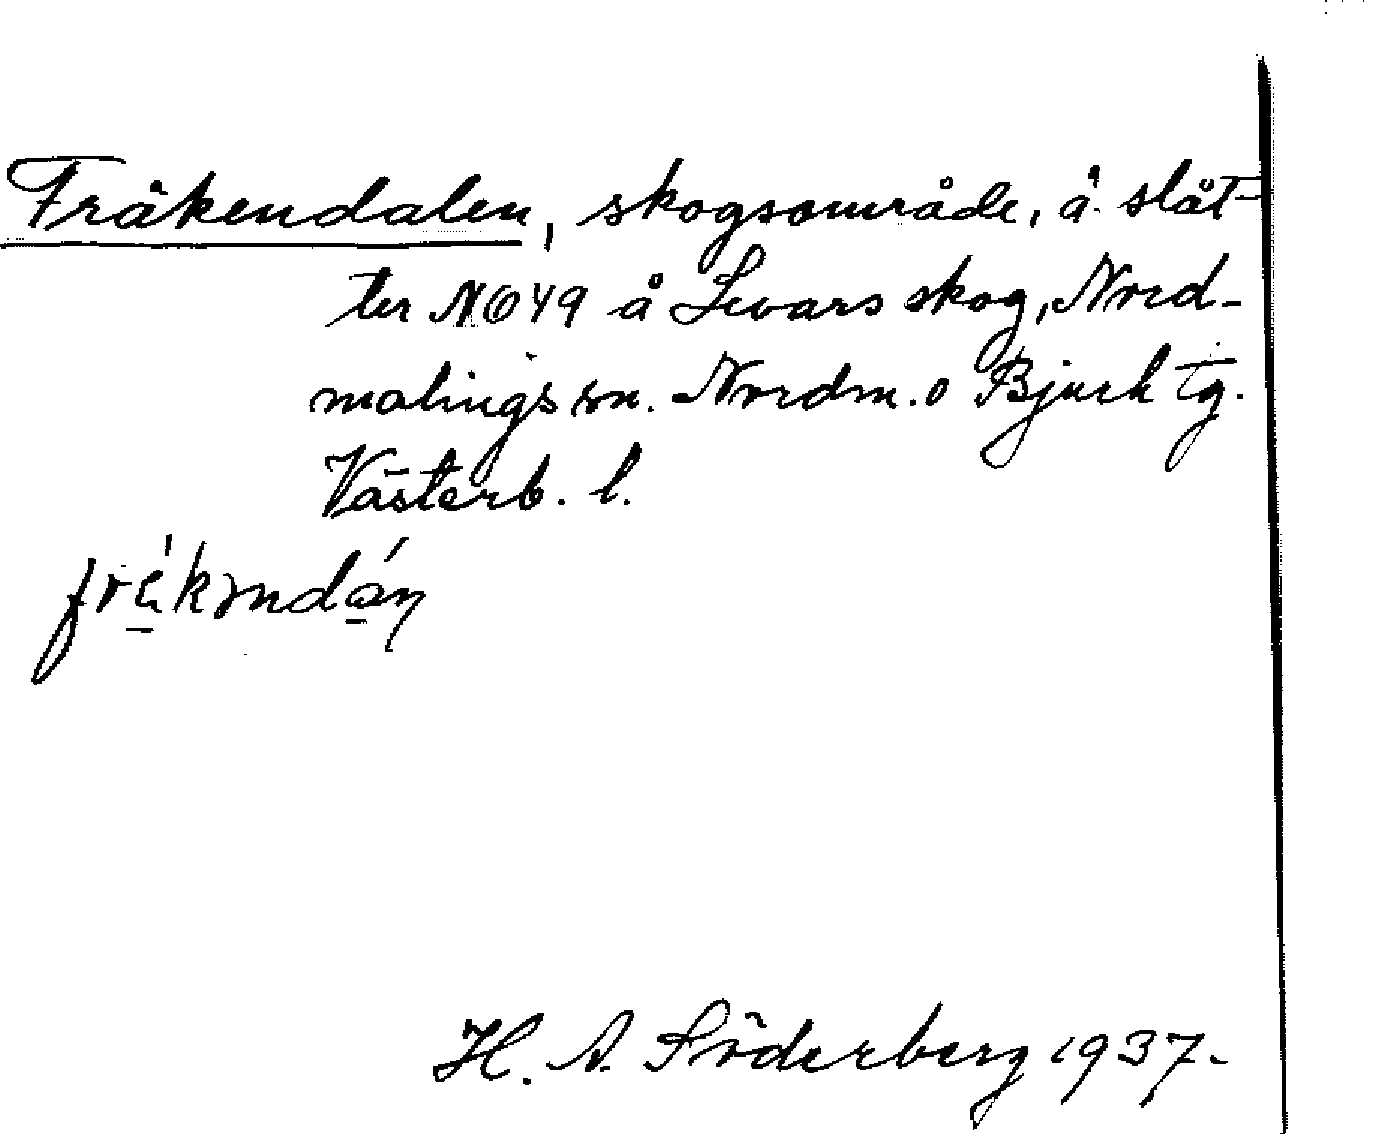 Fräkendalen, skogsområde, å slåt-
ter NO 49 å Levars skog, Nord-
malings sn. Nordm. o Bjurh tg.
Västerb. l.
H. A. Söderberg 1937.